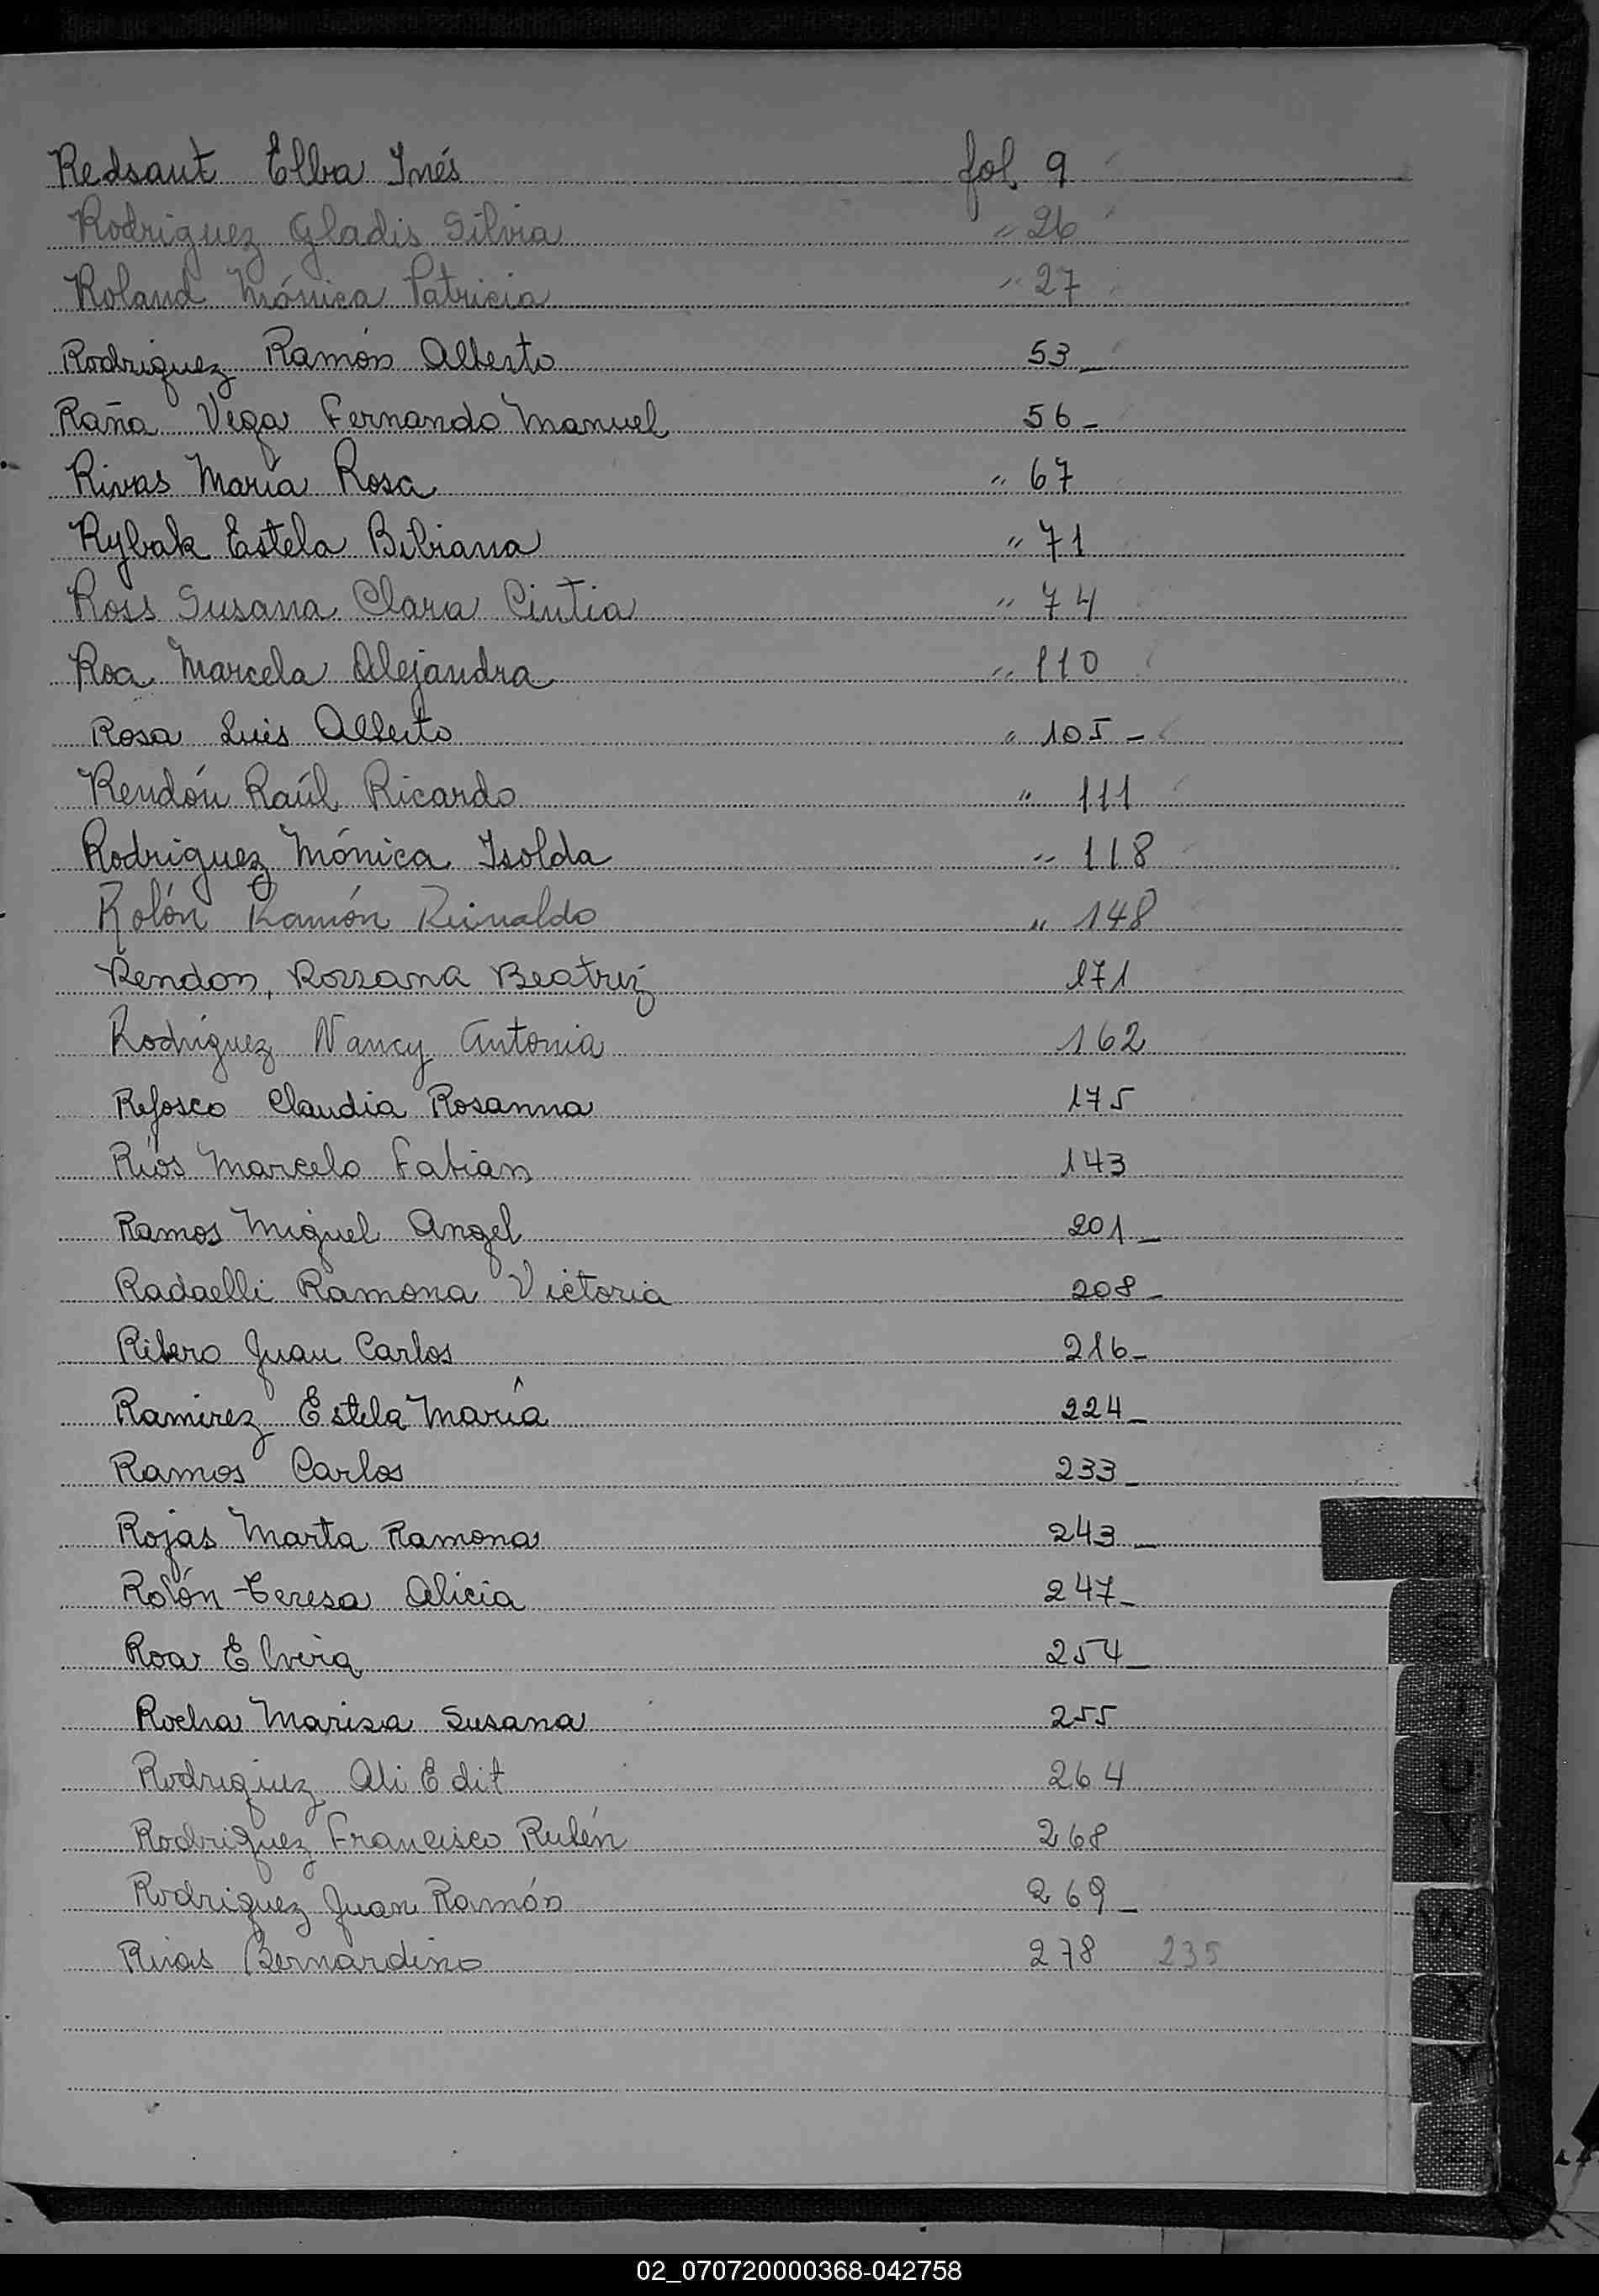 Redsaut Elba Inés fol. 9
Rodriguez Gladis Silvia " 26
Roland Mónica Patricia " 27
Rodriguez Ramón Alberto 53_
Raña Vega Fernando Manuel 56_
Rivas María Rosa " 67
Rybak Estela Bibiana " 71
Ross Susana Clara Cintia " 74
Roa Marcela Alejandra " 110
Rosa Luis Alberto " 105 -
Rendón Raúl Ricardo " 111
Rodriguez Mónica Isolda " 118
Rolón Ramón Reinaldo " 148
Rendon, Rossana Beatriz 171
Rodríguez Nancy Antonia 162
Refosco Claudia Rosanna 175
Ríos Marcelo Fabian 143
Ramos Miguel Angel 201_
Radaelli Ramona Victoria 208_
Ribero Juan Carlos 216_
Ramirez Estela María 224_
Ramos Carlos 233_
Rojas Marta Ramona 243_
Rolón Teresa Alicia 247_
Roa Elvira 254_
Rocha Marisa Susana 255
Rodriguez Ali Edit 264
Rodriguez Francisco Rubén 268
Rodriguez Juan Ramón 269_
Rivas Bernardino 278 235
R
S
T
U
V
W
X
Y
Z
02_070720000368-042758